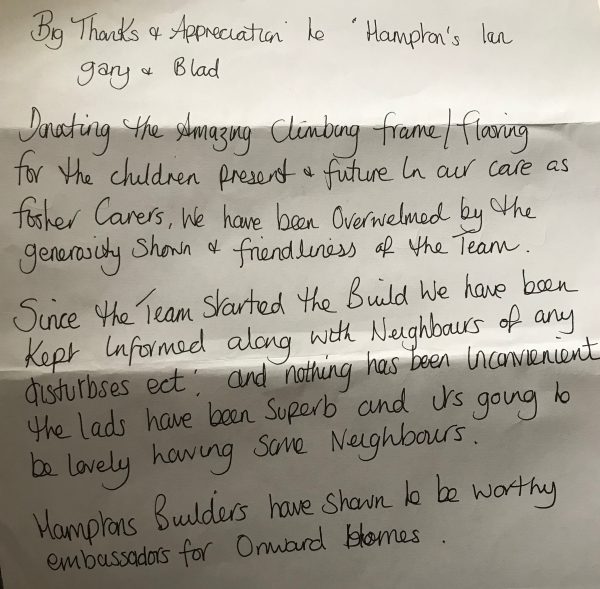 Big Thanks & Appreciation to 'Hampton's Ian
Gary & Blad
Donating the Amazing Climbing frame/flooring
for the children present & future In our care as
foster Carers, We have been Overwelmed by the
generosity Shown & friendliness of the Team.
Since the Team Started the Build We have been
Kept Informed along with Neighbours of any
disturbses ect; and nothing has been Inconvienient
the lads have been Superb and its going to
be lovely having Some Neighbours.
Hamptons Builders have shown to be worthy
embassadors for Onward Homes.